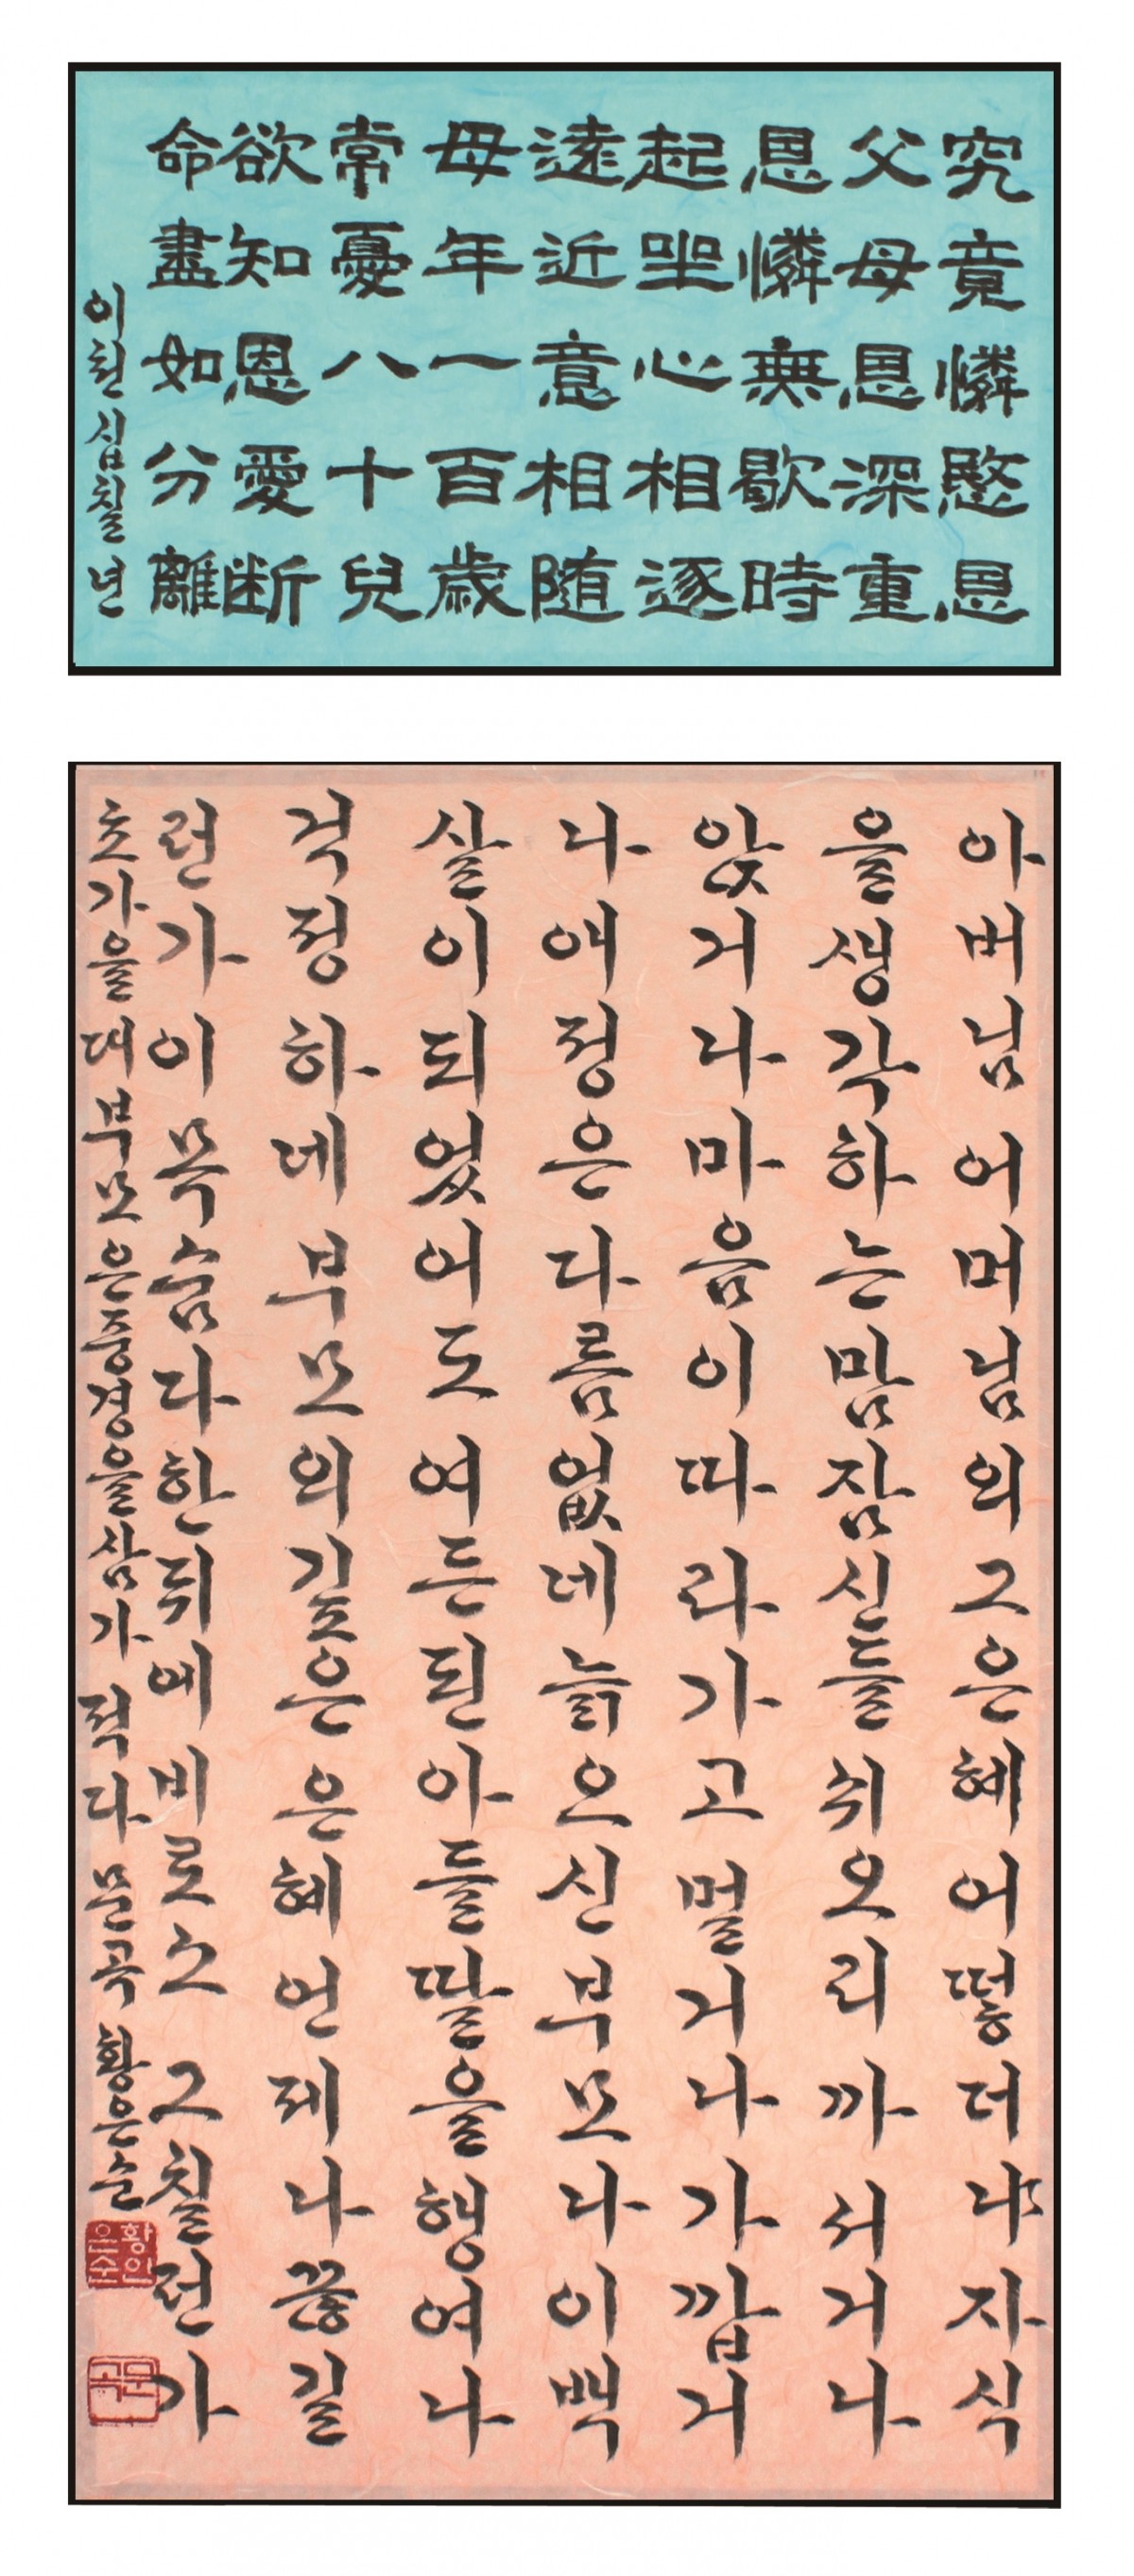 究竟憐愍恩
父母恩深重
恩憐無歇時
起坐心相逐
遠近意相随
母年一百歳
常憂八十兒
欲知恩愛断
命盡如分離
이천십칠년
아버님어머님의그은혜어떻더냐자식
을생각하는맘잠신들쉬오리까서거나
앉거나마음이따라가고멀거나가깝거
나애정은다름없네늙오신부모다이백
살이되었어도여든된아들딸을행여나
걱정하네부모의깊은은혜언제나끊길
런가이목숨다한뒤에비로소그칠런가
초가을대부모은중경을삼가적다문곡황은순
황인은순
문곡